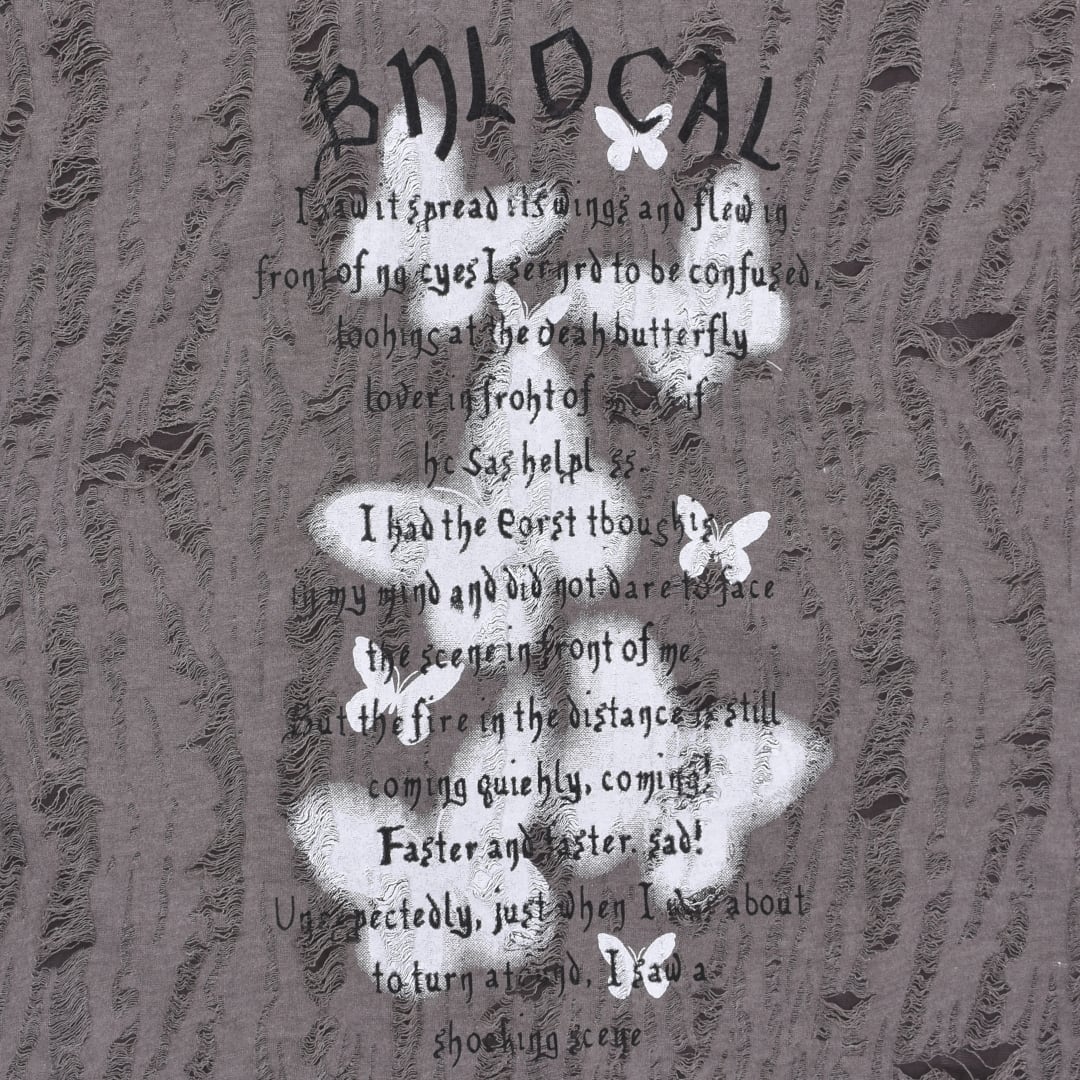 BNLOCAL
I saw it spread its wings and flew in
front of ng cyes I sernrd to be confused,
toohing at the deah butterfly
lover in froht of if
hc Sas helpl ss.
I had the Eorst tboughts
in my mind and did not dare to face
the scene in front of me.
But the fire in the distance is still
coming quiehly, coming!
Faster and faster. sad!
Unexpectedly, just when I was about
to turn I saw a
shocking scene